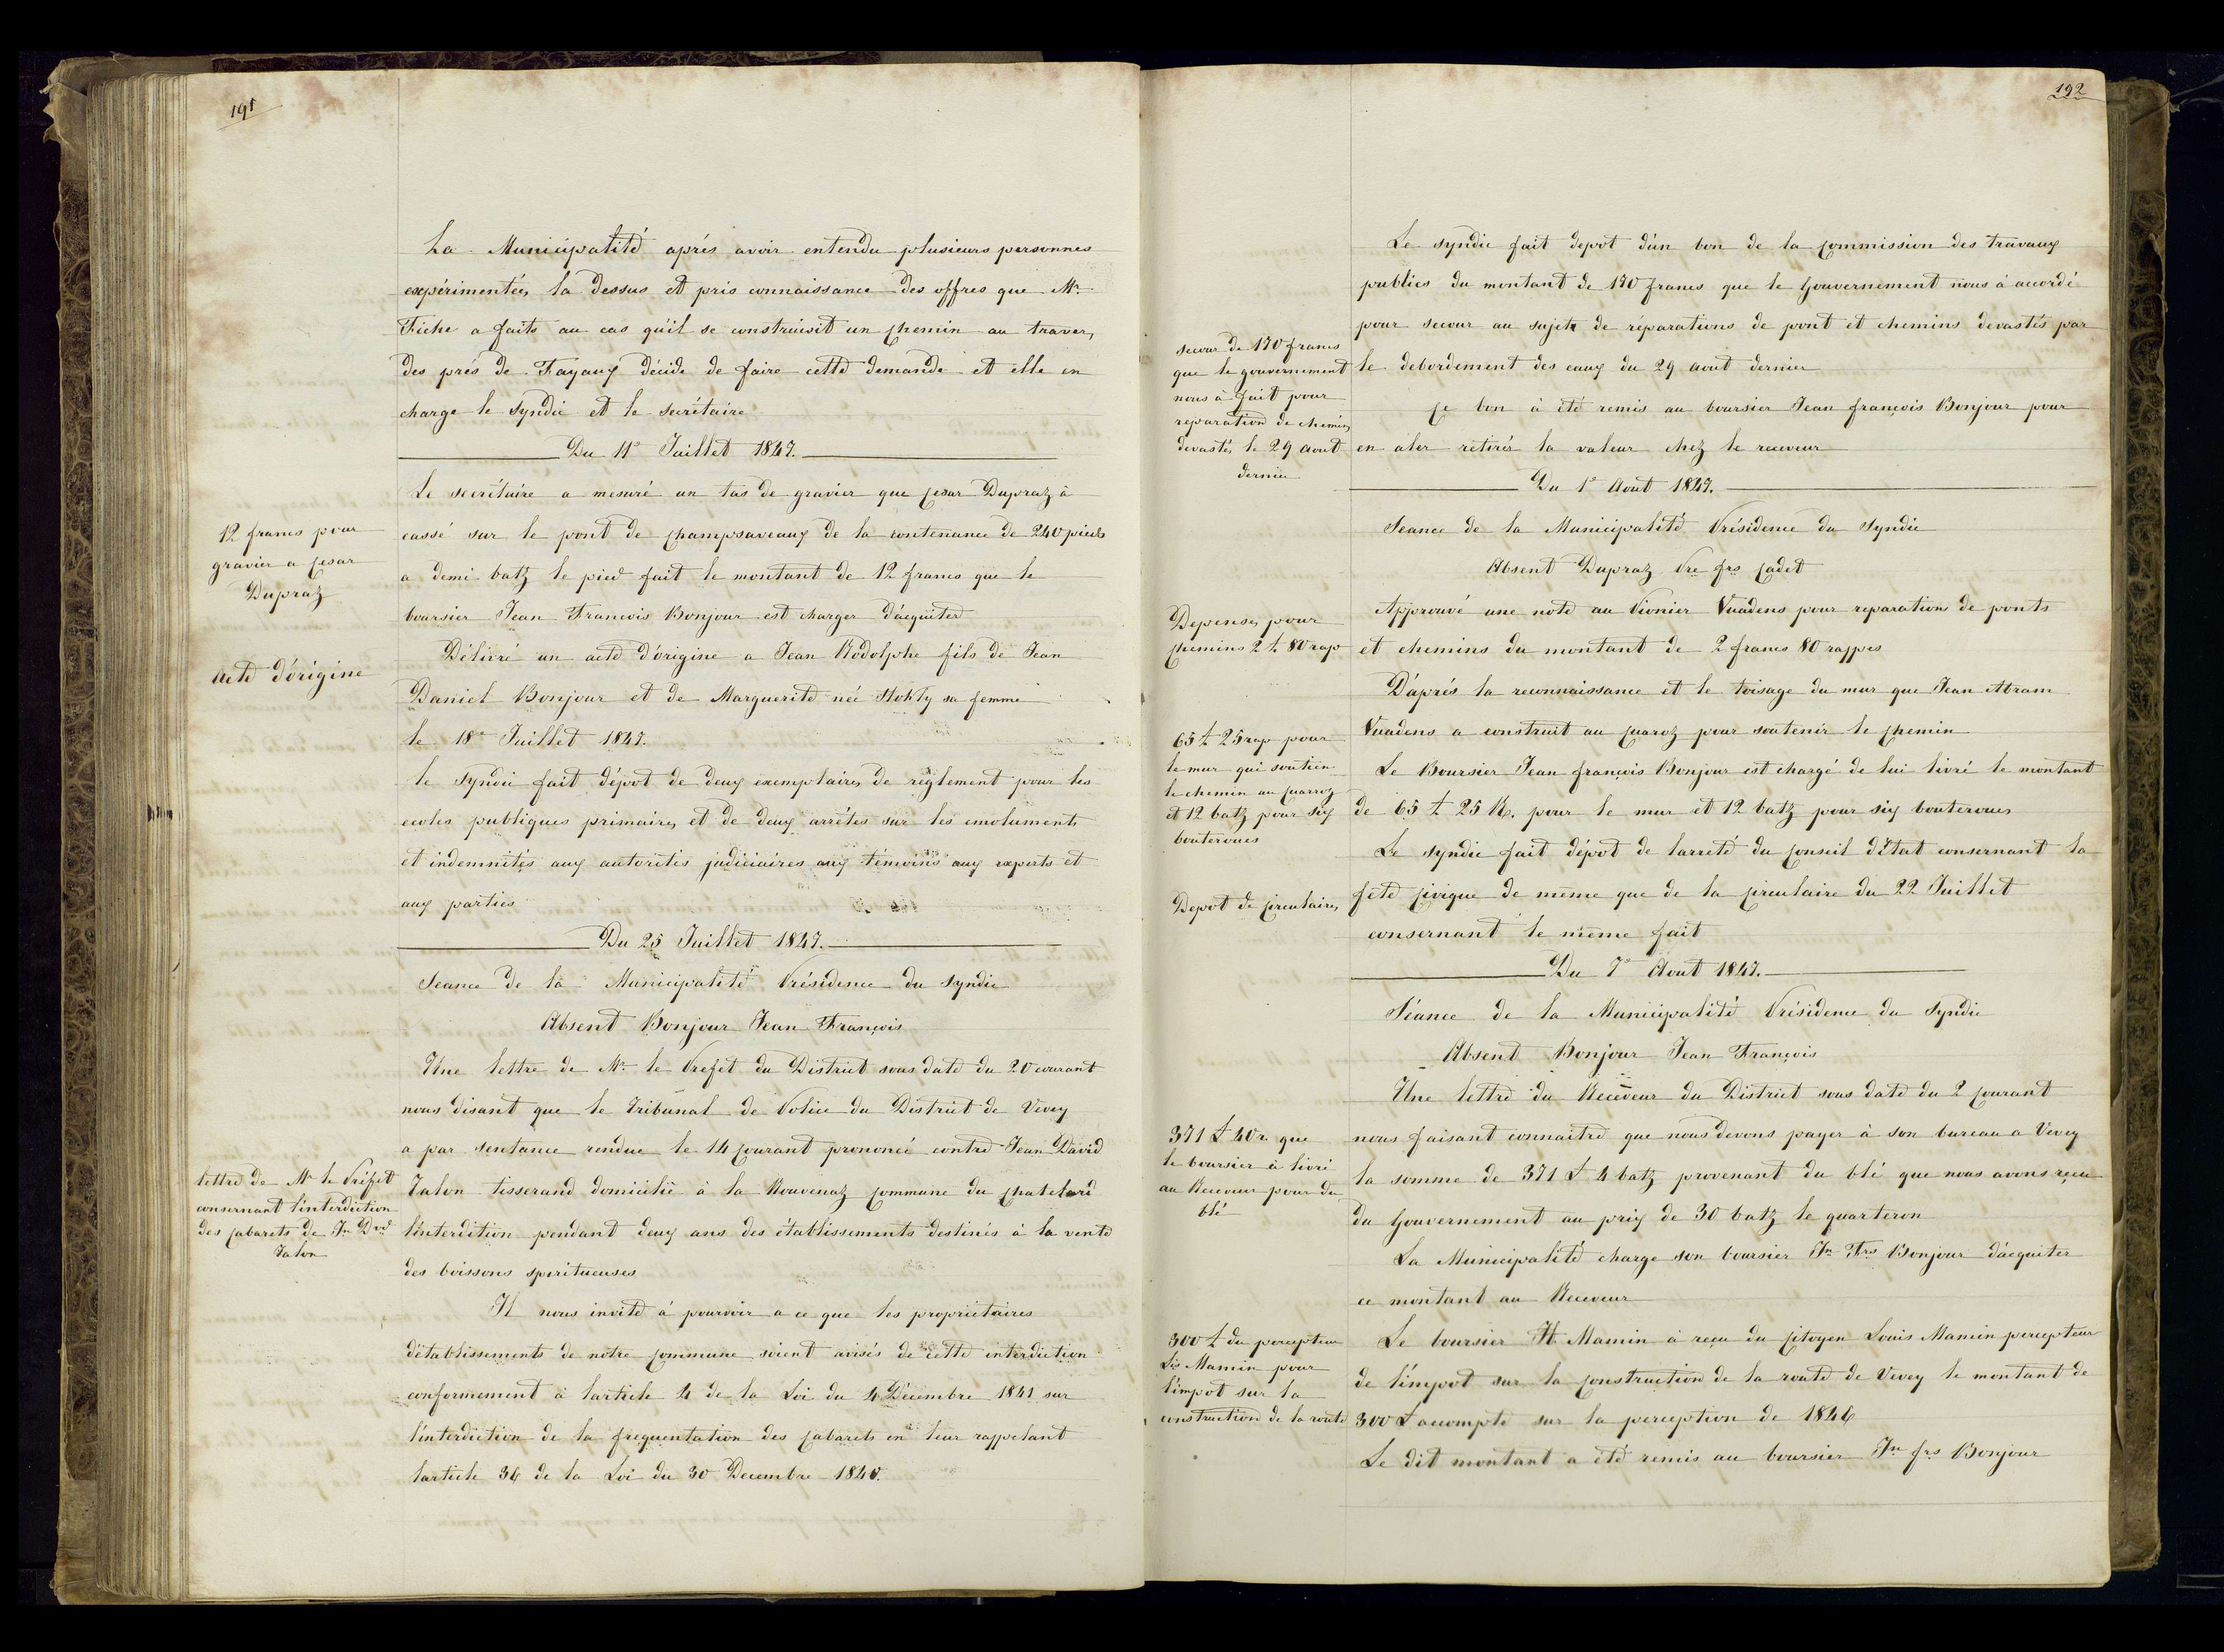 191
La Municipalité aprés avoir entendu plusieurs personnes
expérimentées la dessus et pris connaissance des offres que Mr.
Fiche a faits au cas qu'il se construisit un chemin au travers
des prés de Fayaux décide de faire cette demande et elle en
charge le Syndic et le secrétaire
Du 11e Juillet 1847.
12 francs pour
gravier a Cesar
Dupraz
Le secrétaire a mesuré un tas de gravier que Cesar Dupraz à
cassé sur le pont de Champsaveaux de la contenance de 240 pieds
a demi batz le pied fait le montant de 12 francs que le
boursier Jean François Bonjour est charger d'acquiter
Acte d'origine
Délivré un acte d'origine a Jean Rodolphe fils de Jean
Daniel Bonjour et de Marguerite née Stokly sa femme
le 18e Juillet 1847.
le Syndic fait dépot de deux exemplaires de règlement pour les
ecoles publiques primaires et de deux arrêtés sur les emoluments
et indemnités aux autorités judiciaires aux témoins aux experts et
aux parties
Du 25 Juillet 1847.
Seance de la Municipalité Présidence du Syndic
Absent Bonjour Jean François
Une lettre de Mr le Prefet du District sous date du 20 courant
nous disant que le Tribunal de Police du District de Vevey
a par sentance rendue le 14 courant prononcé contre Jean David
lettre de Mr le Préfet
consernant l'interdiction
des cabarets de Jn Dvd
Talon
Talon tisserand domicilié à la Rouvenaz Commune du Chatelard
l'interdition pendant deux ans des établissements destinés à la vente
des boissons spiritueuses
Il nous invite à pourvoir a ce que les propriétaires
d'établissements de nôtre Commune soient avisés de cette interdiction
conformement à larticle 4 de la Loi du 4 Décembre 1841 sur
l'interdiction de la frequentation des Cabarets en leur rappelant
larticle 36 de la Loi du 30 Decembre 1840.
192
Le syndic fait depot d'un bon de la Commission des travaux
publics du montant de 170 francs que le Gouvernement nous à accordé
pour secour au sujet de réparations de pont et chemins devastés par
le debordement des eaux du 29 aout dernier
secour de 170 francs
que le gouvernement
nous à fait pour
reparation de chemins
devastés le 29 aout
dernier
Ce bon à été remis au boursier Jean françois Bonjour pour
en aler retirés la valeur chez le receveur
Du 1e Aout 1847.
Seance de la Municipalité Présidence du Syndic
Absent Dupraz Pre frs Cadet
Depenses pour
Chemins 2 £ 80 rap
Approuvé une note au Pionier Vuadens pour reparations de ponts
et chemins du montant de 2 francs 80 rappes
D'aprés la reconnaissance et le toisage du mur que Jean Abram
Vuadens a construit au Quaroz pour soutenir le Chemin
65 £ 25 rap pour
le mur qui soutien
le chemin au Quarroz
et 12 batz pour six
bouteroues
Le Boursier Jean françois Bonjour est chargé de lui livré le montant
de 65 £ 25 R. pour le mur et 12 batz pour six bouteroues
Depot de Circulaires
Le syndic fait dépot de larreté du Conseil d'Etat consernant la
fête Civique de même que de la Circulaire du 22 Juillet
consernant le même fait
Du 7e Aout 1847.
Séance de la Municipalité Présidence du Syndic
Absent Bonjour Jean François
Une lettre du Receveur du District sous date du 2 Courant
nous faisant connaitre que nous devons payer à son bureau a Vevey
la somme de 371 £ 4 batz provenant du blé que nous avons reçu
du Gouvernement au prix de 30 batz le quarteron
371 £ 40 r. que
le boursier à livré
au Receveur pour du
blé
La Municipalité charge son boursier Jn Frs Bonjour d'acquiter
ce montant au Receveur
300 £ du percepteur
Ls Mamin pour
l'impot sur la
construction de la route
Le boursier H Mamin à reçu du Citoyen Louis Mamin percepteur
de l'impot sur la Construction de la route de Vevey le montant de
300 £ accompte sur la perception de 1846
Le dit montant a été remis au boursier Jn frs Bonjour